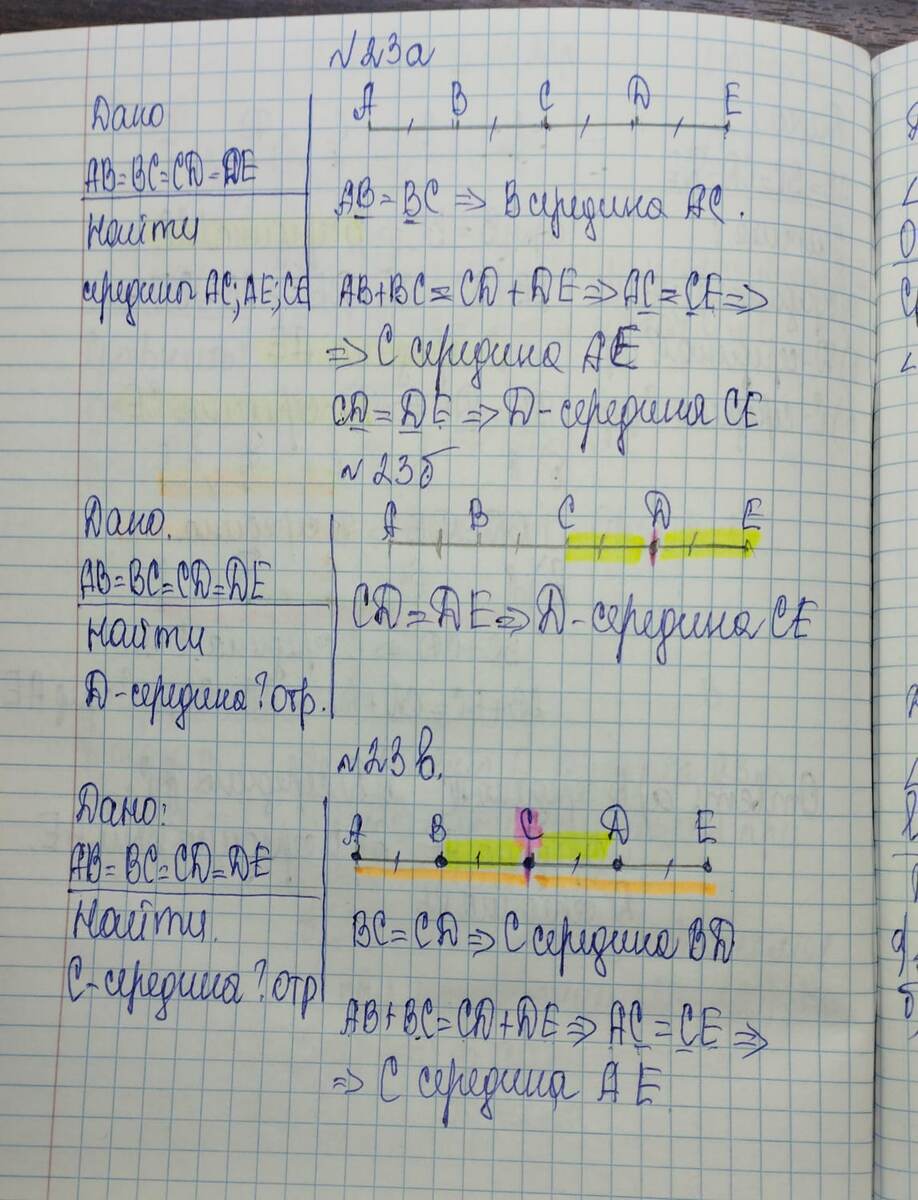 №23а
Дано
AB=BC=CD=DE
Найти
середины AC; AE; CE
A B C D E
AB=BC ⇒ B середина AC.
AB+BC=CD+DE ⇒ AC=CE ⇒
⇒ C середина AE
CD=DE ⇒ D-середина CE
№23б
Дано.
AB=BC=CD=DE
Найти
D-середина ? отр.
A B C D E
CD=DE ⇒ D-середина CE
№23в.
Дано:
AB=BC=CD=DE
Найти.
C-середина ? отр
A B C D E
BC=CD ⇒ C середина BD
AB+BC=CD+DE ⇒ AC=CE ⇒
⇒ C середина AE